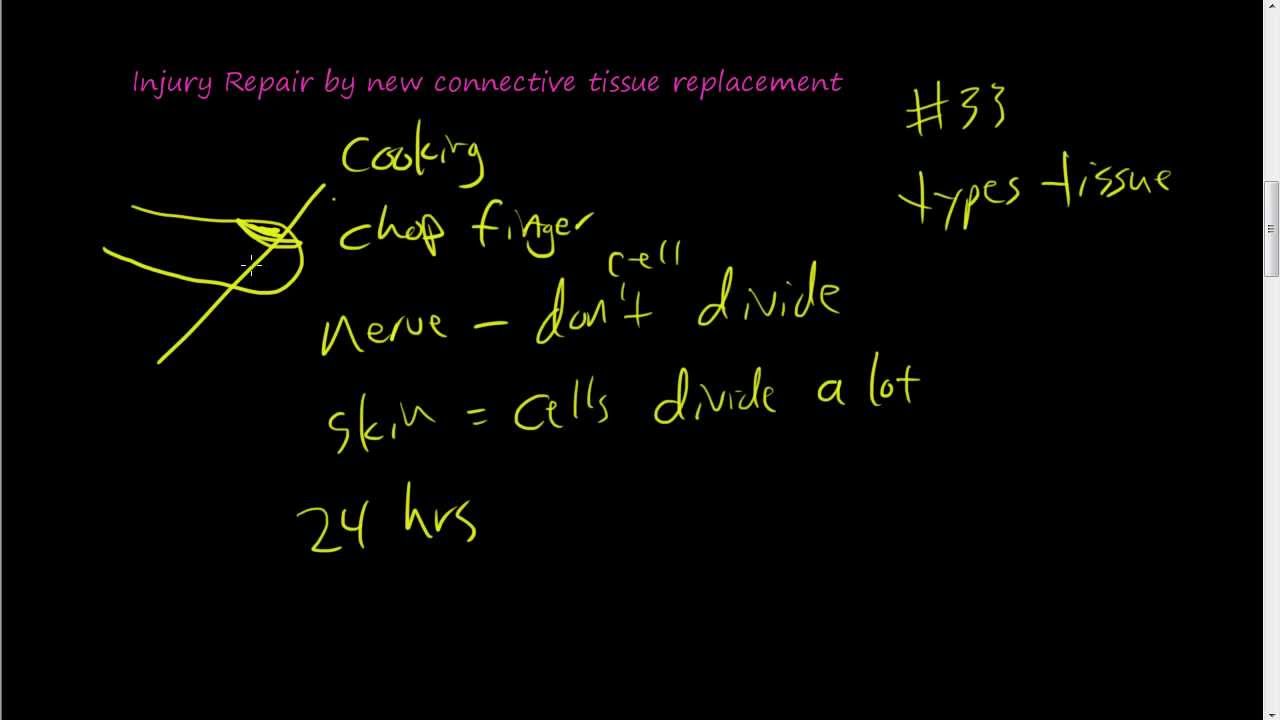 Injury Repair by new connective tissue replacement
#33
types tissue
Cooking
chop finger
cell
nerve - don't divide
skin = cells divide a lot
24 hrs